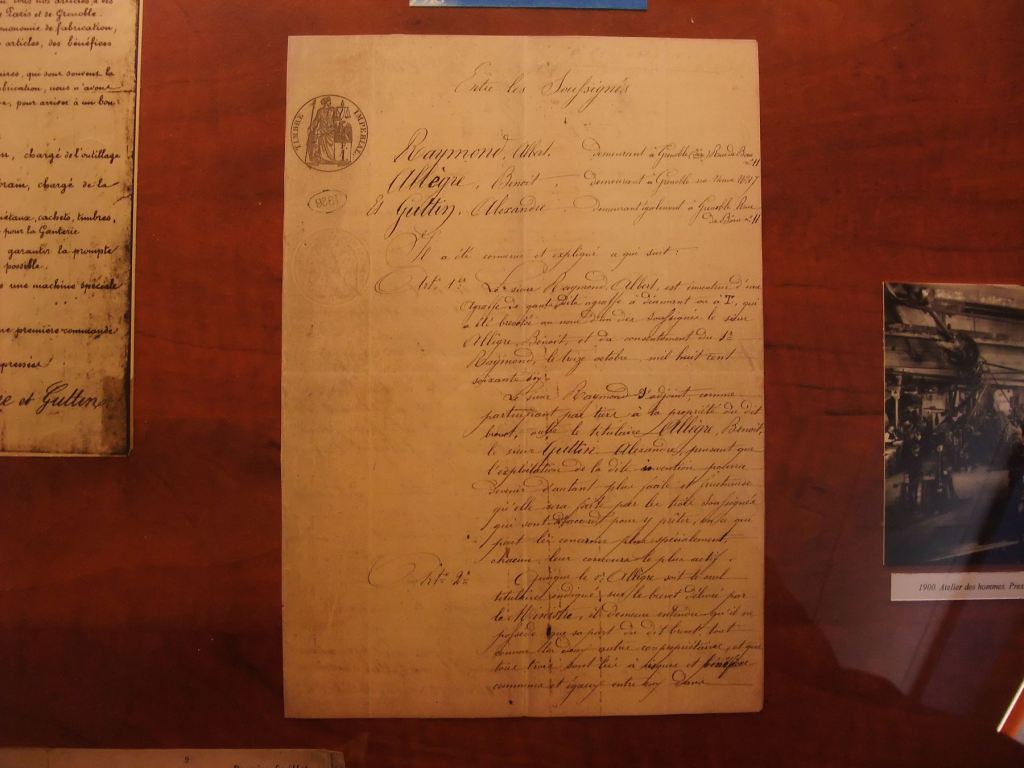 Paris et de Grenoble.
économie de fabrication,
articles, des bénéfices
qui sont souvent la
fabrication, nous n'avons
pour arriver à un bon
chargé de l'outillage
chargé de la
métaux, cachets, timbres,
pour la Ganterie
garantir la prompte
possible.
une machine spéciale
première commande
et Guttin
Entre les Soussignés
TIMBRE IMPERIAL
Raymond, Albert, Demeurant à Grenoble, Rue de Bonne n° 11
Allègre, Benoit, demeurant à Grenoble
Et Guttin, Alexandre, Demeurant également à Grenoble Rue
de Bonne n° 11
Il a été convenu et expliqué ce qui suit :
Art. 1er Le sieur Raymond, Albert, est inventeur d'une
Agraffe de gants dite agraffe à diamant ou à T, qui
a été brevetée au nom d'un des soussignés le sieur
Allègre, Benoit, et du consentement du Sr
Raymond, le treize octobre, mil huit cent
soixante six.
Le sieur Raymond s'adjoint, comme
participant par tiers à la propriété du dit
brevet, outre le titulaire Allègre, Benoit,
le sieur Guttin Alexandre, pensant que
l'exploitation de la dite invention pourra
devenir d'autant plus facile et fructueuse
qu'elle sera faite par les trois soussignés
qui sont d'accord pour y prêter, en ce qui
peut les concerner plus spécialement,
chacun, leur concours le plus actif.
Art. 2e Quoique le Sr Allègre soit le seul
titulaire indiqué sur le brevet délivré par
le Ministre, il demeure entendu qu'il ne
possède que sa part du dit brevet tout
comme les deux autres copropriétaires, et que
tous trois sont liés à risques et bénéfices
communs et égaux entre eux dans
1900. Atelier des hommes.